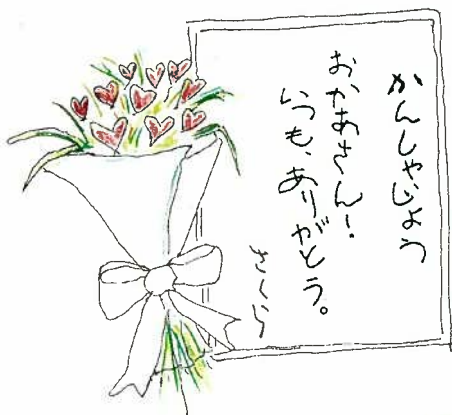 かんしゃじょう
おかあさん!
いつも、ありがとう。
さくら